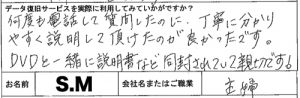 データ復旧サービスを実際に利用してみていかがですか?
何度も電話して質問したのに、丁寧に分かり
やすく説明して頂けたのが良かったです。
DVDと一緒に説明書なども同封されていて親切です!
お名前 S.M 会社名またはご職業 主婦